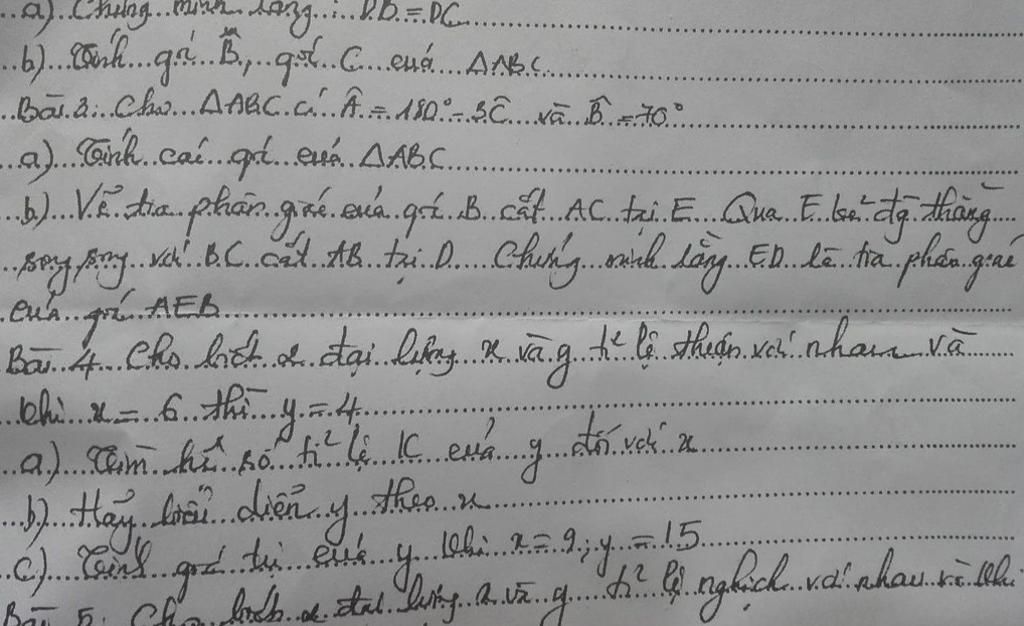 a) Chứng minh rằng: DB = DC
b) Tính góc B̂, góc C của ΔABC
Bài 3: Cho ΔABC có Â = 180° - 3Ĉ và B̂ = 70°
a) Tính các góc của ΔABC
b) Vẽ tia phân giác của góc B cắt AC tại E. Qua E kẻ đg thẳng
song song với BC cắt AB tại D. Chứng minh rằng ED là tia phân giác
của góc AEB
Bài 4. Cho biết 2 đại lượng x và y tỉ lệ thuận với nhau và
khi x = 6 thì y = 4
a) Tìm hệ số tỉ lệ K của y đối với x
b) Hãy biểu diễn y theo x
c) Tính giá trị của y khi x = 9; y = 15
Bài 5: Cho biết 2 đại lượng x và y tỉ lệ nghịch với nhau và khi